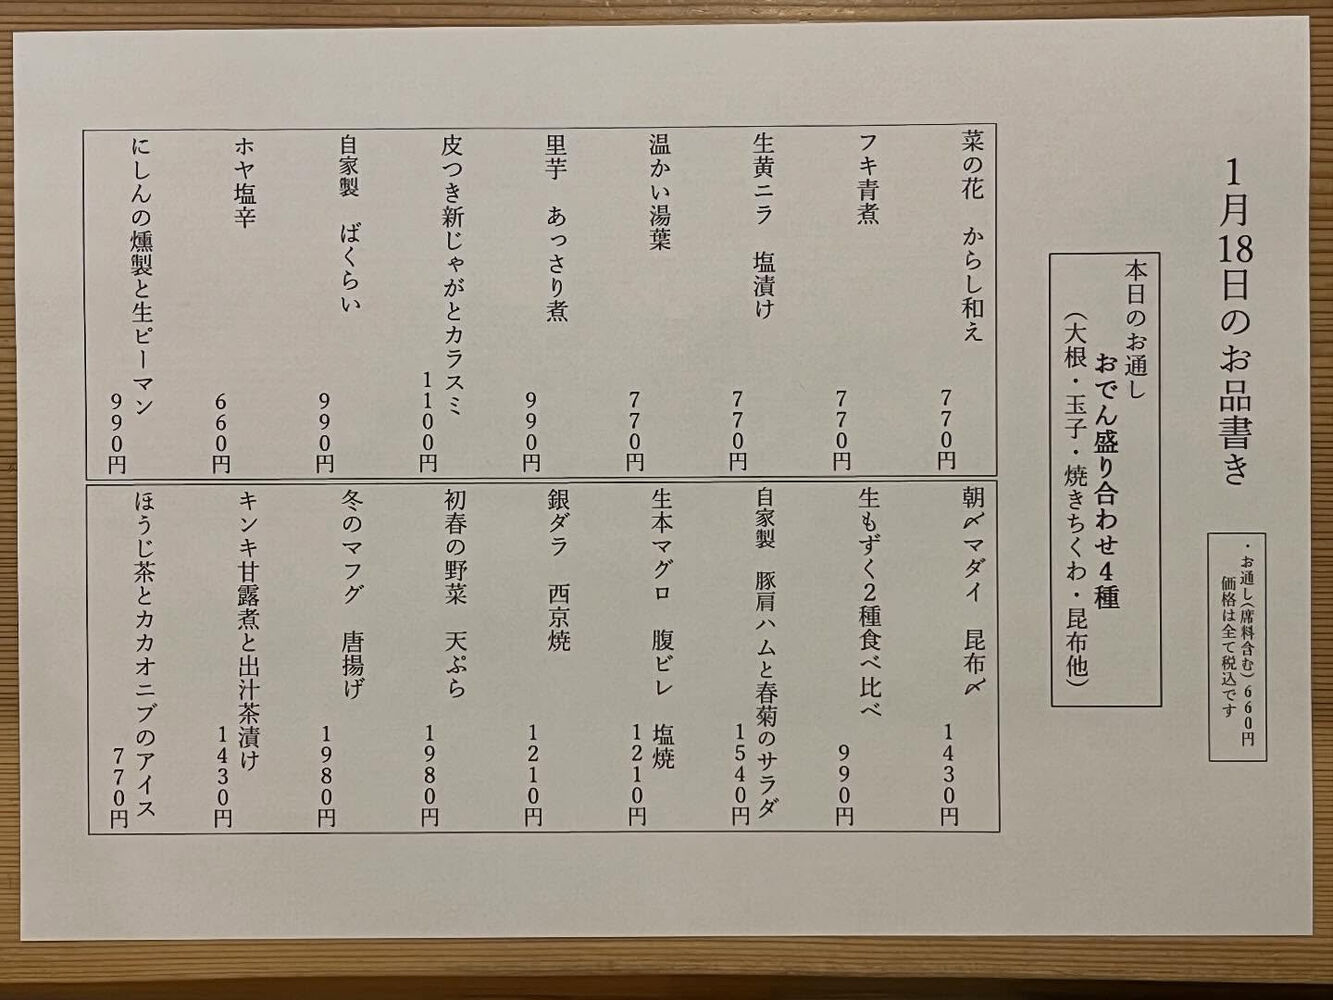 1月18日のお品書き
・お通し(席料含む)660円
価格は全て税込です
本日のお通し
おでん盛り合わせ4種
(大根・玉子・焼きちくわ・昆布他)
菜の花 からし和え 770円
フキ青煮 770円
生黄ニラ 塩漬け 770円
温かい湯葉 770円
里芋 あっさり煮 990円
皮つき新じゃがとカラスミ 1100円
自家製 ばくらい 990円
ホヤ塩辛 660円
にしんの燻製と生ピーマン 990円
朝〆マダイ 昆布〆 1430円
生もずく2種食べ比べ 990円
自家製 豚肩ハムと春菊のサラダ 1540円
生本マグロ 腹ビレ 塩焼 1210円
銀ダラ 西京焼 1210円
初春の野菜 天ぷら 1980円
冬のマフグ 唐揚げ 1980円
キンキ甘露煮と出汁茶漬け 1430円
ほうじ茶とカカオニブのアイス 770円